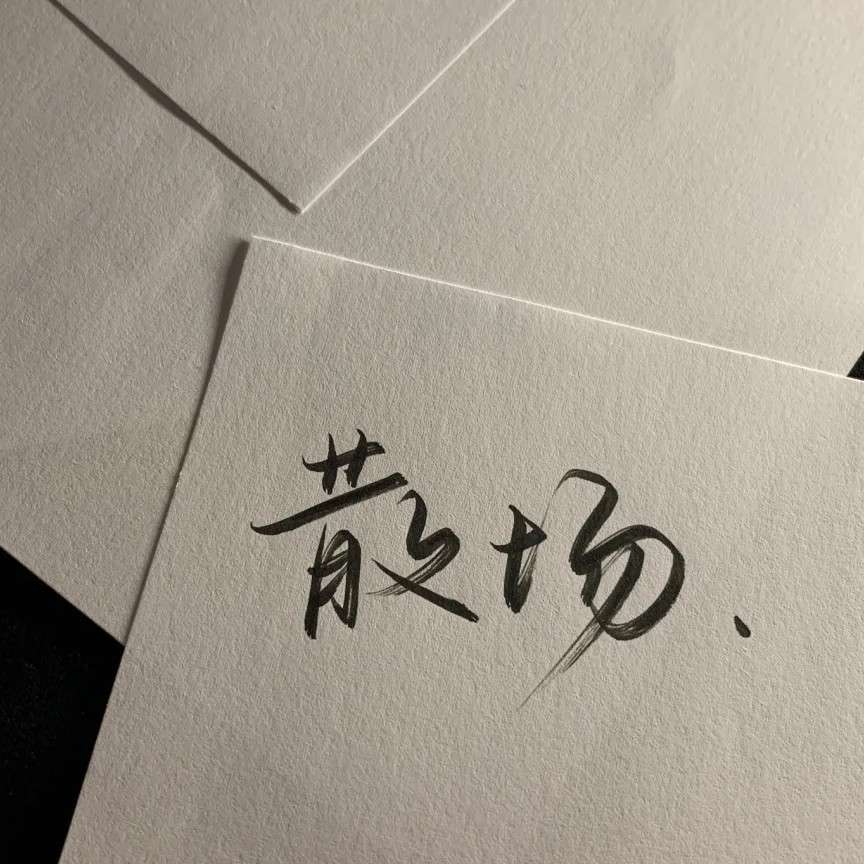 散场.